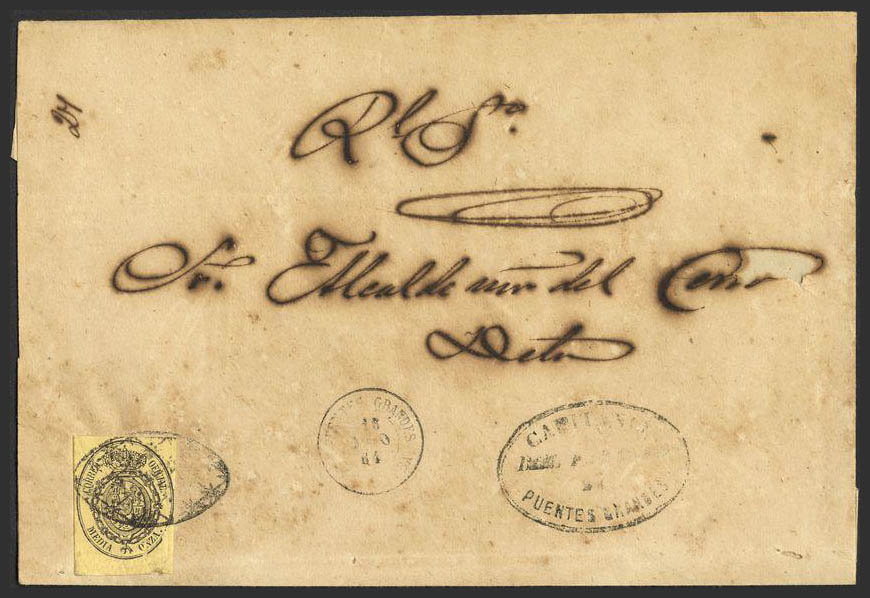 24
Rl. So.
Sr. Alcalde del Cerro
PUENTES GRANDES
15
64
CAPITANIA
DE
PUENTES GRANDES
CORREO OFICIAL
MEDIA ONZA.